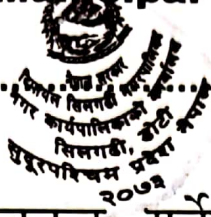 नेपाल सरकार
दिपायल सिलगढी नगरपालिका
नगर कार्यपालिकाको कार्यालय
सिलगढी, डोटी
सुदूरपश्चिम प्रदेश नेपाल
२०७३